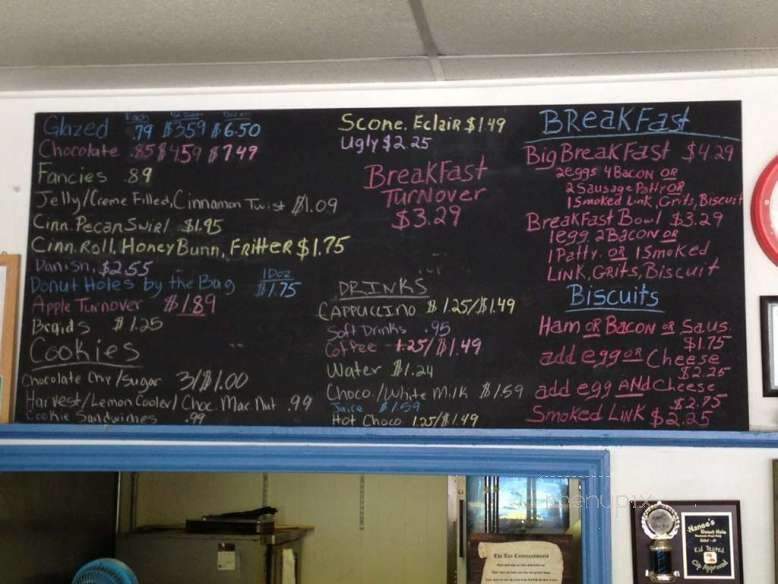 Each Dozen
Glazed .79 $3.59 $6.50
Chocolate .85 $4.59 $7.49
Fancies .89
Jelly/Creme Filled, Cinnamon Twist $1.09
Cinn. Pecan Swirl $1.95
Cinn. Roll, Honey Bunn, Fritter $1.75
Danish $2.55
Donut Holes by the Bag 1 Doz $1.75
Apple Turnover $1.89
Braids $1.25
Cookies
Chocolate Chp/Sugar 3/$1.00
Harvest/Lemon Cooler/Choc. Mac Nut .99
Cookie Sandwiches .99
Scone, Eclair $1.49
Ugly $2.25
Breakfast
Turnover
$3.29
DRINKS
Cappuccino $1.25/$1.49
Soft Drinks .95
Coffee 1.25/$1.49
Water $1.24
Choco./White Milk $1.59
Juice $1.59
Hot Choco 1.25/$1.49
BReaKFast
Big Breakfast $4.29
2 eggs 4 Bacon OR
2 Sausage Patty OR
1 Smoked Link, Grits, Biscuit
Breakfast Bowl $3.29
1 egg 2 Bacon OR
1 Patty OR 1 Smoked
Link, Grits, Biscuit
Biscuits
Ham OR Bacon OR Saus.
$1.75
add egg OR Cheese
$2.25
add egg AND Cheese
$2.75
Smoked Link $2.25
menupix
The Ten Commandments
Nanee's
Donut Hole
Kid Tested
Approved